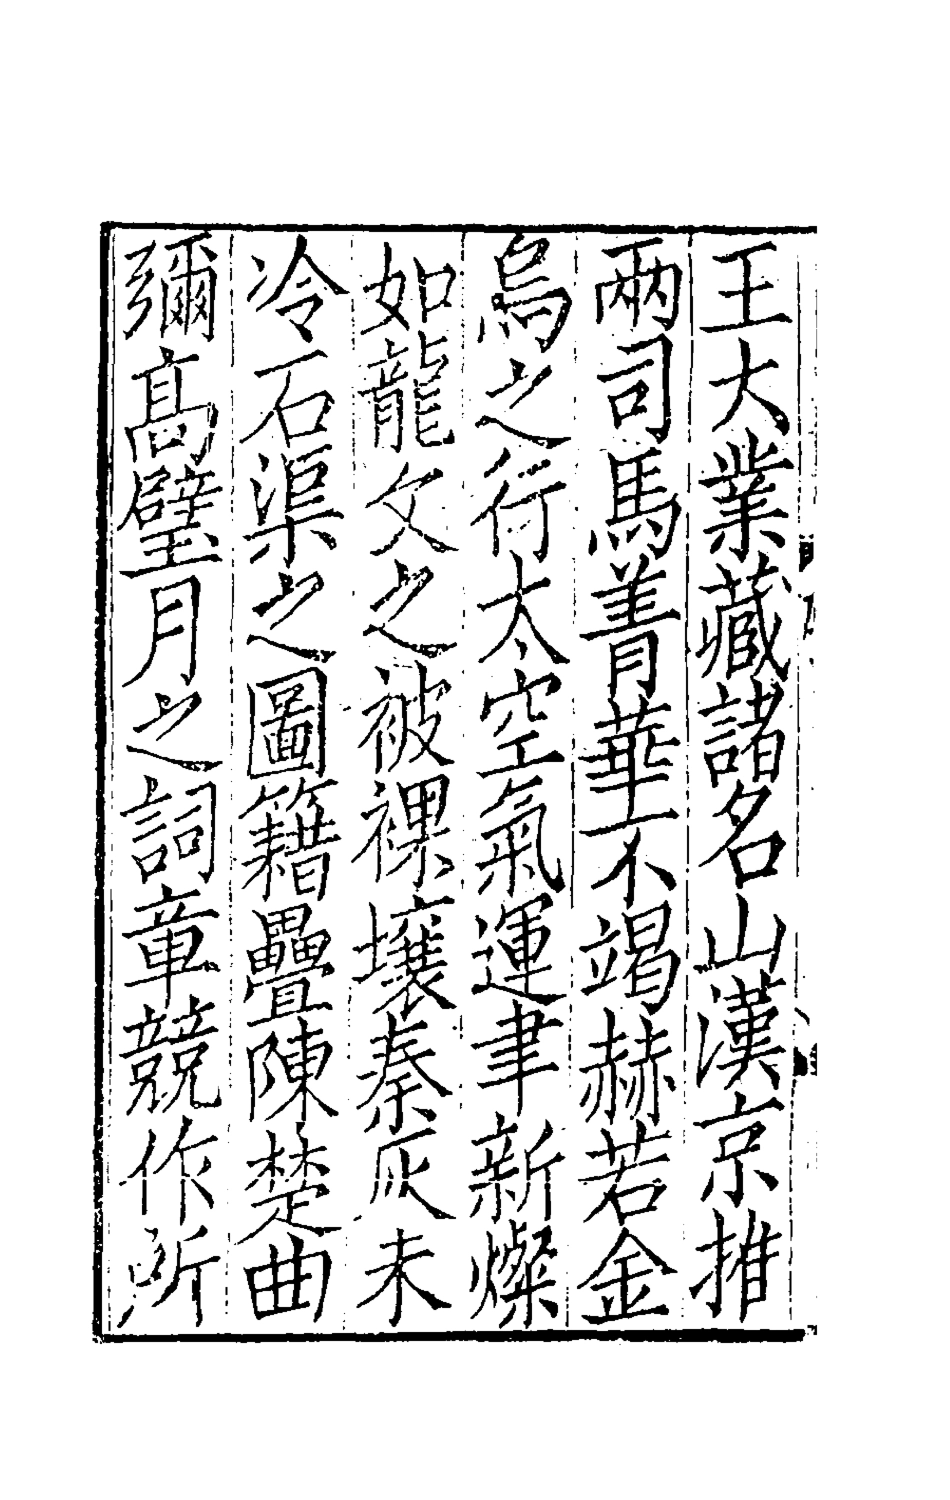 王大業藏諸名山漢京推
兩司馬菁華不竭赫若金
烏之行太空氣運聿新燦
如龍文之被裸壤秦灰未
冷石渠之圖籍疊陳楚曲
彌高璧月之詞章競作所